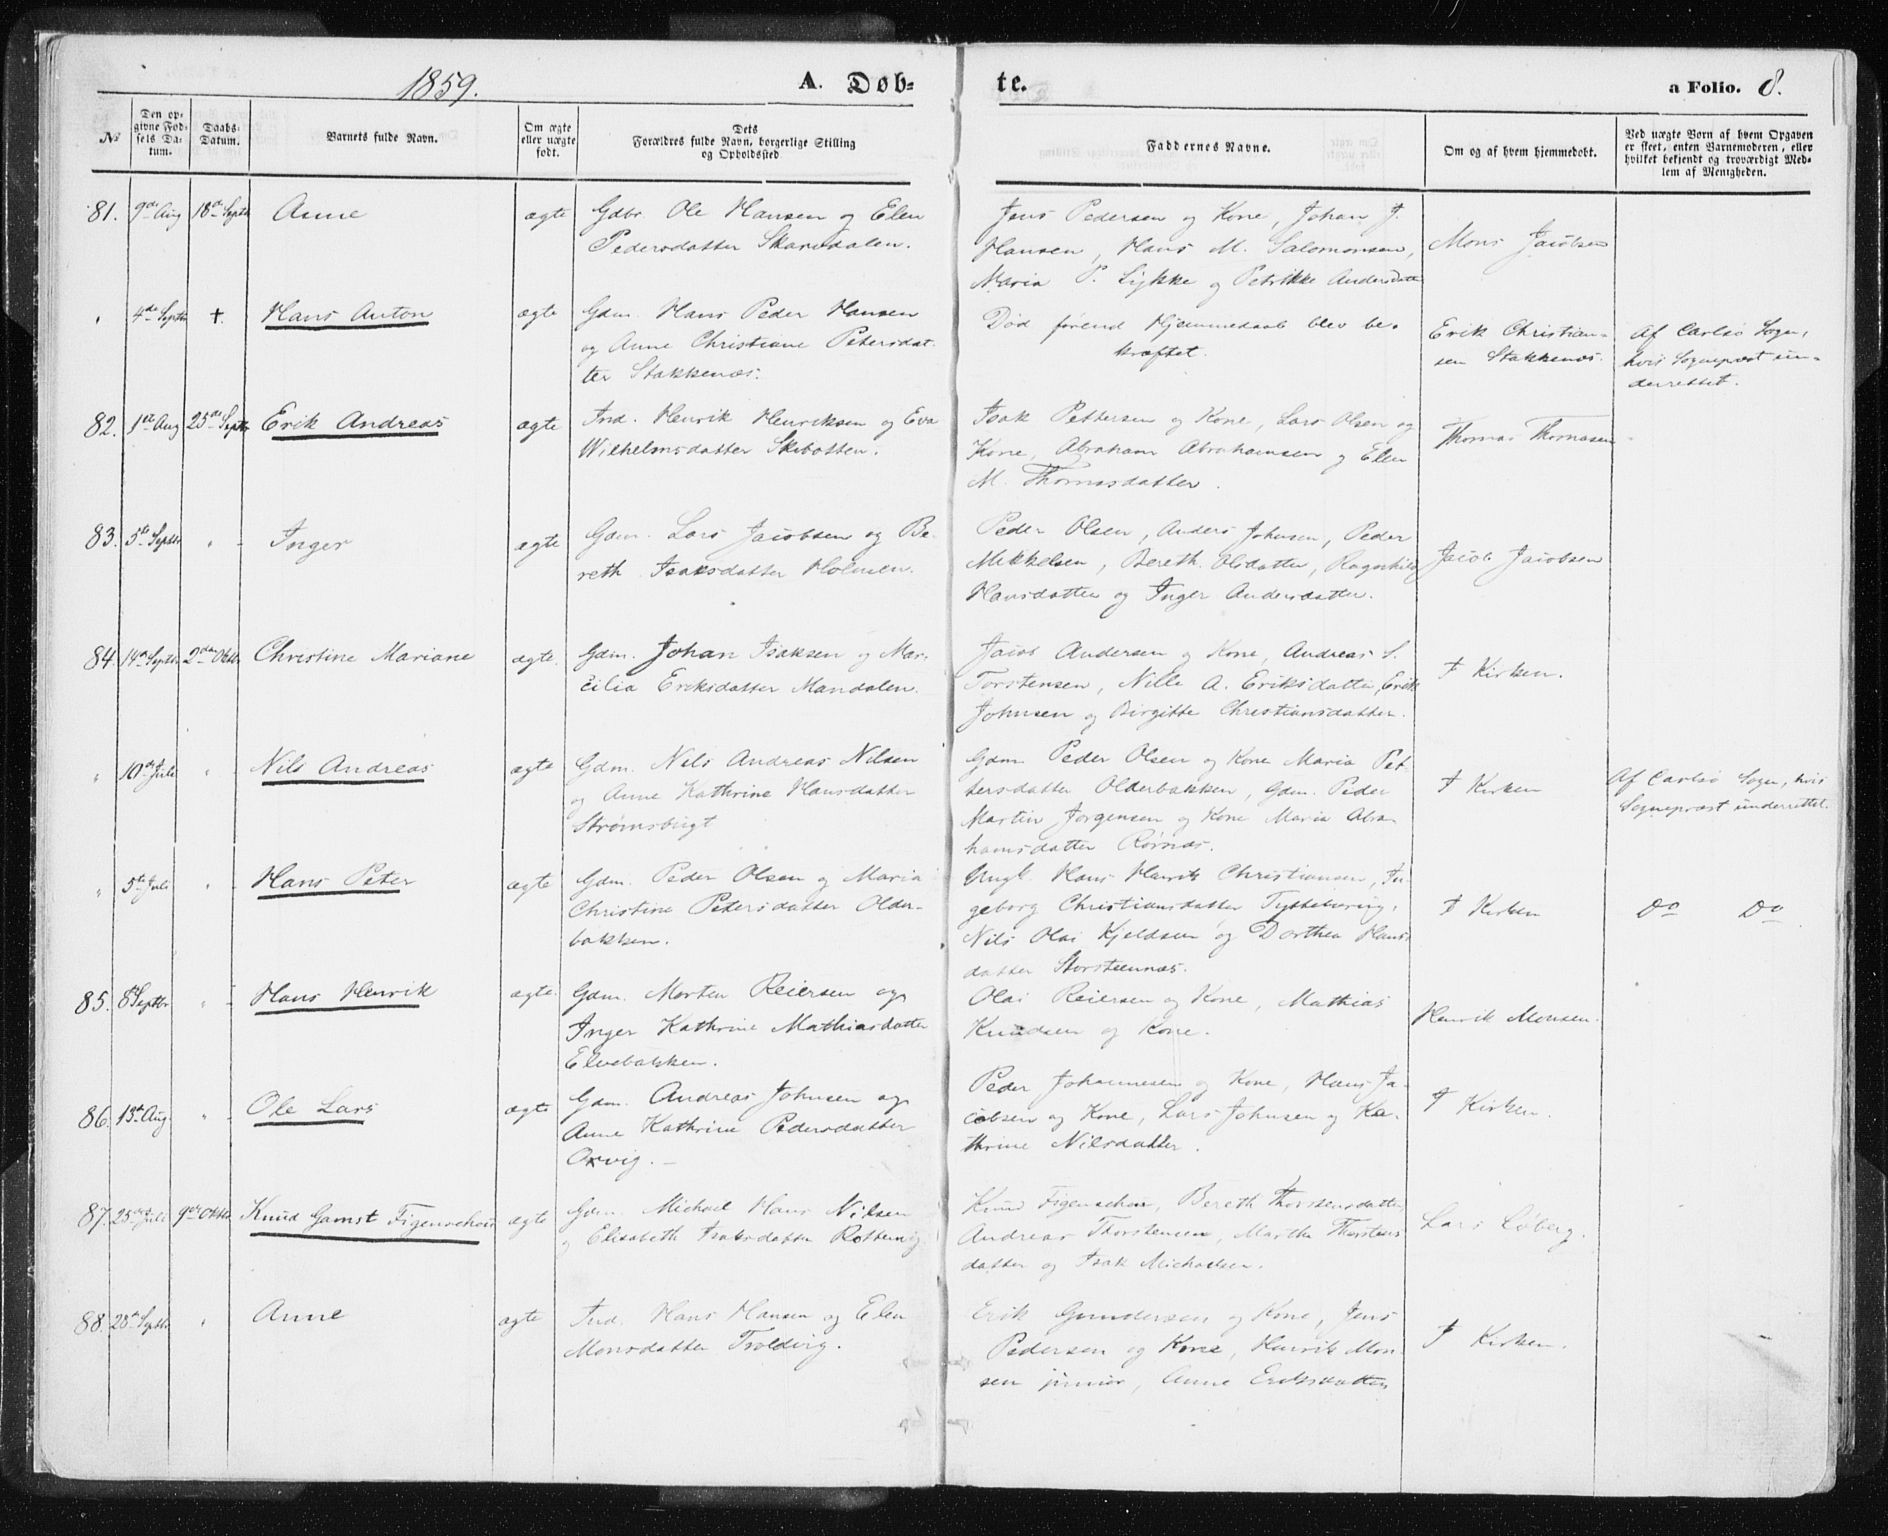 1859.
A. Døb-
te.
a Folio. 8.
No
Den op-
givne Fød-
sels Da-
tum.
Daabs-
Datum.
Barnets fulde Navn.
Om ægte
eller uægte
født.
Dets
Forældres fulde Navn, borgerlige Stilling
og Opholdssted
Faddernes Navne.
Om og af hvem hjemmedøbt.
Ved uægte Børn af hvem Opgaven
er skeet, enten Barnemoderen, eller
hvilket bekjendt og troværdigt Med-
lem af Menigheden.
81. 9de Aug 18de Septbr Anne ægte
Gdbr. Ole Hansen og Elen
Pedersdatter Skardalen.
Jens Pedersen og Kone, Johan J.
Hansen, Hans M. Salomonsen,
Maria P. Lykke og Petrikke Andersdatter
Mons Jacobsen
" 4de Septbr +. Hans Anton ægte
Gdm. Hans Peder Hansen
og Anne Christiane Petersdat-
ter Stakkenæs.
Død førend Hjemmedaab blev be-
kræftet.
Erik Christian-
sen Stakkenæs.
Af Carlsø Sogn,
hvis Sognepræst un-
derrettet.
82. 1ste Aug 25de Septbr Erik Andreas ægte
Ind. Henrik Henriksen og Eva
Wilhelmsdatter Skibotten.
Isak Pettersen og Kone, Lars Olsen og
Kone, Abraham Abrahamsen og Elen
M. Thomasdatter.
Thomas Thomasen
83. 5te Septbr " Inger ægte
Gdm. Lars Jacobsen og Be-
reth Isaksdatter Holmen.
Peder Olsen, Anders Johnsen, Peder
Mikkelsen, Bereth Olsdatter, Ragnhild
Hansdatter og Inger Andersdatter.
Jacob Jacobsen
84. 14de Septbr 2den Oktbr Christine Mariane ægte.
Gdm. Johan Isaksen og Mar-
cilia Eriksdatter Mandalen.
Jacob Andersen og Kone, Andreas S.
Torstensen, Nille A. Eriksdatter, Erik
Johnsen og Birgitte Christiansdatter.
I Kirken.
" 10de Juli " Nils Andreas ægte
Gdm. Nils Andreas Nilsen
og Anne Kathrine Hansdatter
Strømsbugt
Gdm. Peder Olsen og Kone Maria Pet-
tersdatter Olderbakken, Gdm. Peder
Martin Jørgensen og Kone Maria Abra-
hamsdatter Rørnæs.
I Kirken
Af Carlsø Sogn, hvis
Sognepræst underrettet.
" 5te Juli " Hans Peter ægte
Gdm. Peder Olsen og Maria
Christine Petersdatter Older-
bakken.
Ungk. Hans Henrik Christiansen, In-
geborg Christiansdatter Tyttebæring,
Nils Olai Kjeldsen og Dorthea Hans-
datter Storsteennæs.
I Kirken
Do Do
85. 8de Septbr " Hans Henrik ægte.
Gdm. Morten Reiersen og
Inger Kathrine Mathiasdatter
Elvebakken.
Olai Reiersen og Kone, Mathias
Knudsen og Kone.
Henrik Monsen.
86. 13de Aug. " Ole Lars ægte
Gdm. Andreas Johnsen og
Anne Kathrine Pedersdatter
Orvig. —
Peder Johannesen og Kone, Hans Ja-
cobsen og Kone, Lars Johnsen og Ka-
thrine Nilsdatter.
I Kirken.
87. 25de Juli 9de Oktbr Knud Gamst Figenschou ægte
Gdm. Michael Hans Nilsen
og Elisabeth Isaksdatter Rottenvig.
Knud Figenschou, Bereth Thorstensdatter,
Andreas Thorstensen, Marthe Thorstens-
datter og Isak Michaelsen.
Lars Løberg.
88. 28de Septbr " Anne ægte
Ind. Hans Hansen og Elen
Monsdatter Troldvig.
Erik Gundersen og Kone, Jens
Pedersen og Kone, Henrik Mon-
sen junior, Anne Eriksdatter
I Kirken.